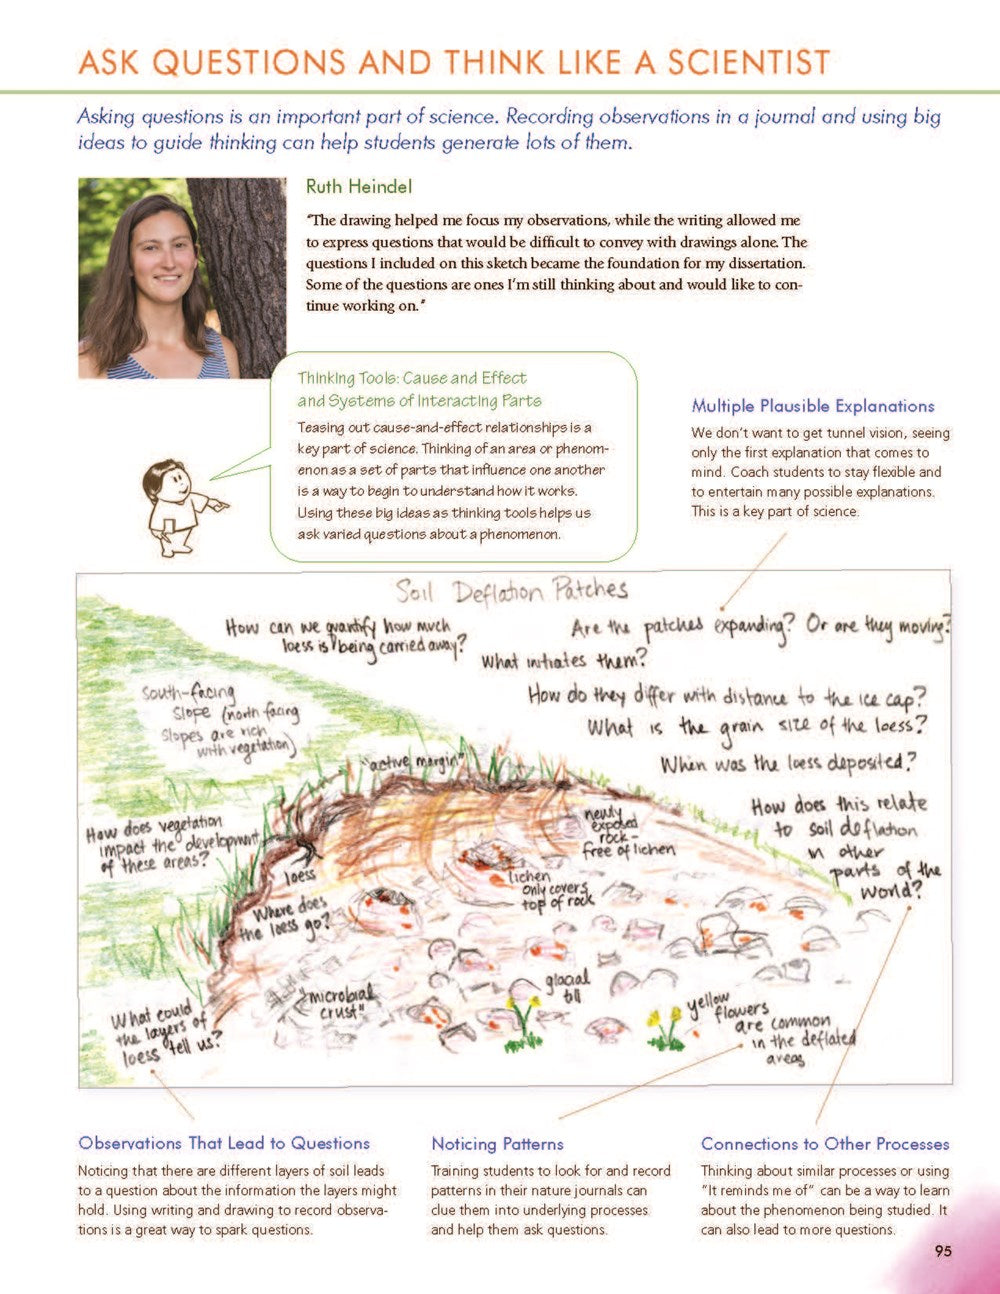 ASK QUESTIONS AND THINK LIKE A SCIENTIST
Asking questions is an important part of science. Recording observations in a journal and using big
ideas to guide thinking can help students generate lots of them.
Ruth Heindel
"The drawing helped me focus my observations, while the writing allowed me
to express questions that would be difficult to convey with drawings alone. The
questions I included on this sketch became the foundation for my dissertation.
Some of the questions are ones I'm still thinking about and would like to con-
tinue working on."
Thinking Tools: Cause and Effect
and Systems of Interacting Parts
Teasing out cause-and-effect relationships is a
key part of science. Thinking of an area or phenom-
enon as a set of parts that influence one another
is a way to begin to understand how it works.
Using these big ideas as thinking tools helps us
ask varied questions about a phenomenon.
Multiple Plausible Explanations
We don't want to get tunnel vision, seeing
only the first explanation that comes to
mind. Coach students to stay flexible and
to entertain many possible explanations.
This is a key part of science.
Soil Deflation Patches
How can we quantify how much
loess is being carried away?
Are the patches expanding? Or are they moving?
What initiates them?
How do they differ with distance to the ice cap?
What is the grain size of the loess?
When was the loess deposited?
South-facing
slope (north facing
slopes are rich
with vegetation)
"active margin"
How does this relate
to soil deflation
in other
parts of the
world?
How does vegetation
impact the development
of these areas?
newly
exposed
rock -
free of lichen
loess
lichen
only covers
top of rock
Where does
the loess go?
"microbial
crust"
glacial
till
What could
the layers of
loess tell us?
yellow
flowers
are common
in the deflated
areas
Observations That Lead to Questions
Noticing that there are different layers of soil leads
to a question about the information the layers might
hold. Using writing and drawing to record observa-
tions is a great way to spark questions.
Noticing Patterns
Training students to look for and record
patterns in their nature journals can
clue them into underlying processes
and help them ask questions.
Connections to Other Processes
Thinking about similar processes or using
"It reminds me of" can be a way to learn
about the phenomenon being studied. It
can also lead to more questions.
95